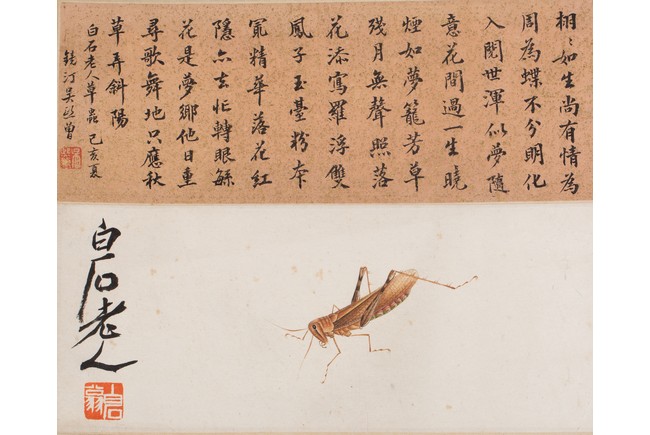 栩〻如生尚有情為
周為蝶不分明化
入閱世渾似夢隨
意花間過一生曉
煙如夢籠芳草
殘月無聲照落
花添寫羅浮雙
鳳子玉臺粉本
精華落花紅
隱去忙轉眼緐
花是夢鄉他日重
尋歌舞地只應秋
草弄斜陽
白石老人草蟲 己亥夏
鏡汀吳熙曾
白石老人